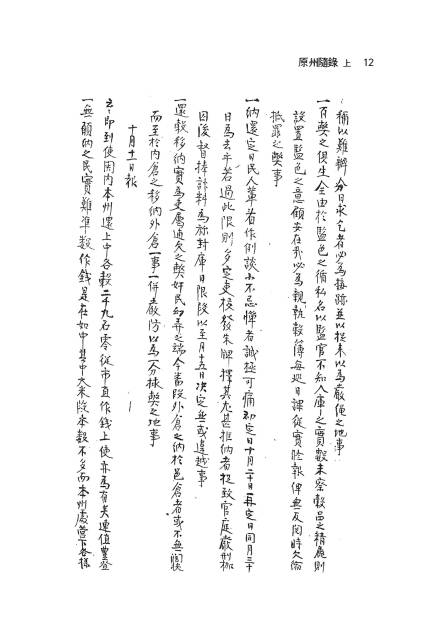 原州隨錄 上 12
稱以難辨分日求乞者必爲推跡並以從來以爲嚴繩之地事
一百弊之俱生全由於監色之循私名以監官不知入庫之實數未察穀品之精麁則
設置監色之意顧安在哉必爲親執穀簿每巡日課從實貽報俾無及閱時欠
抵罪之弊事
一納還定日民人輩看作例談小不忌憚者誠極可痛初定日十月二十日再定日同月三十
日爲去乎若過此限則多定吏校發朱牌擇其尤甚拒納者捉致官庭嚴刑枷
囚後督捧計料爲旀封庫日限段以至月十五日決定無或違越事
一還穀移納實爲吏屬逋欠之弊奸民幻弄之端今番段外倉之納於邑倉者或不無
而至於內倉之移納外倉一事一倂嚴防以爲一分捄弊之地事
十月十一日報
節到使關內本州還上中各穀二千九石零從市直作錢上使亦爲有矣連値豊登
一無願納之民實難準數作錢是在如中其中大米段本穀不多而本州處營下各樣